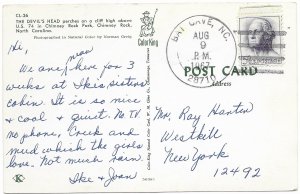 CL-26
THE DEVIL'S HEAD perches on a cliff high above
U.S. 74 in Chimney Rock Park, Chimney Rock,
North Carolina.
Photographed in Natural Color by Norman Greig
Hi,
man
We are here for 3
weeks at Ike's sisters
cabin. It is so nice
& cool & quiet. No TV
no phone, Creek and
mud which the girls
love. Not much rain
Ike & Joan
ColorKing
BAT CAVE, NC.
AUG
9
P.M.
1967
28710
POST CARD
Address
Mr. Ray Hanten
Westkill
New York
12492
K